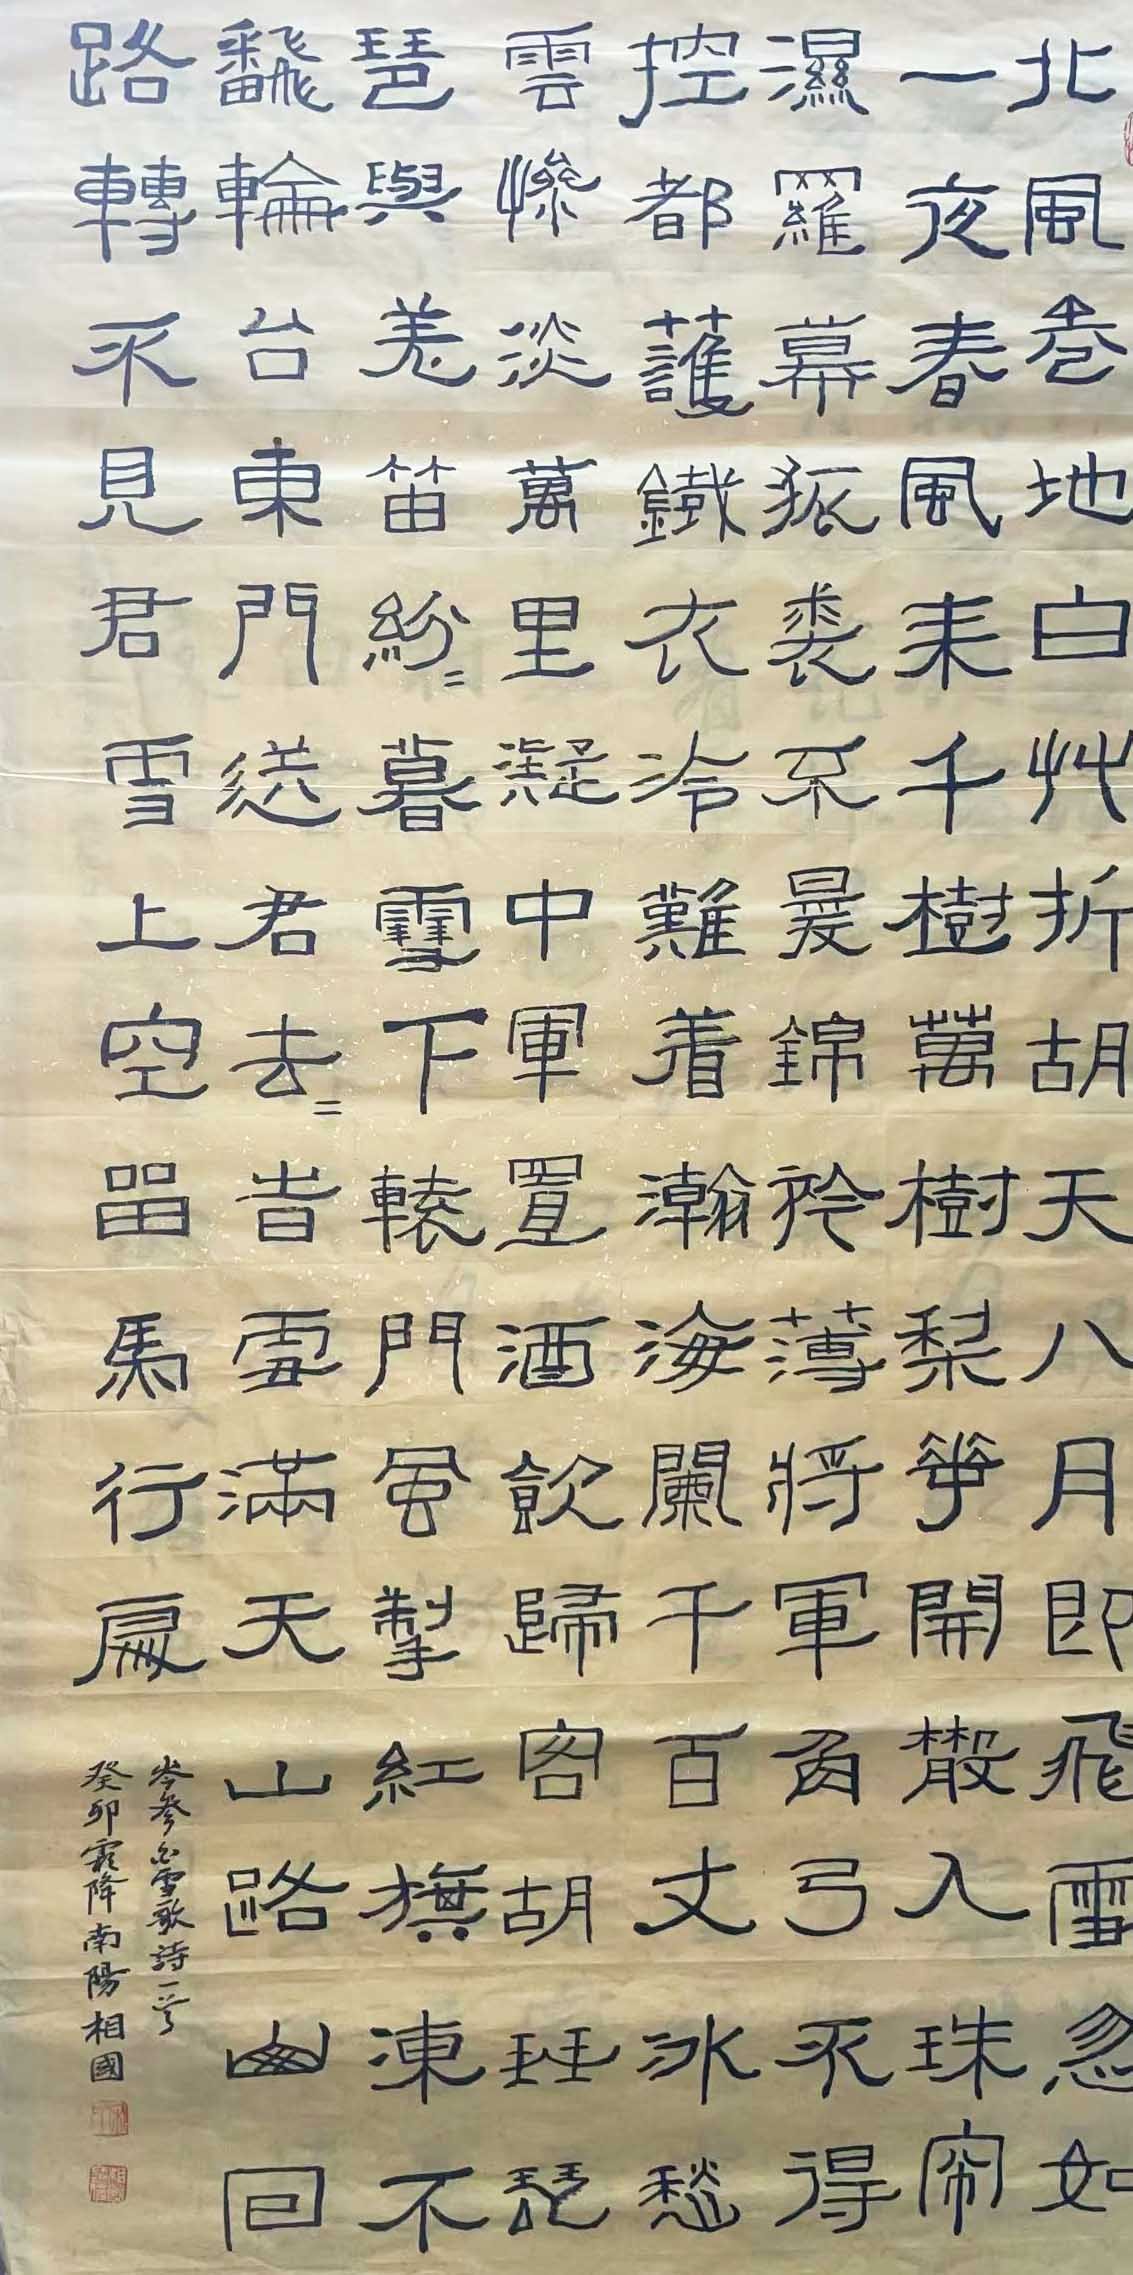 北風卷地白艸折胡天八月即飛雪忽如
一夜春風来千樹萬樹梨華開散入珠帘
濕羅幕狐裘不暖錦衾薄將軍角弓不得
控都護鐵衣冷難着瀚海闌干百丈冰愁
雲慘淡萬里凝中軍置酒飲歸客胡琴琵
琶與羌笛紛〻暮雪下轅門風掣紅旗凍不
飜輪台東門送君去〻旹雪滿天山路山回
路轉不見君雪上空留馬行處
岑參白雪歌詩一首
癸卯霜降南陽相國